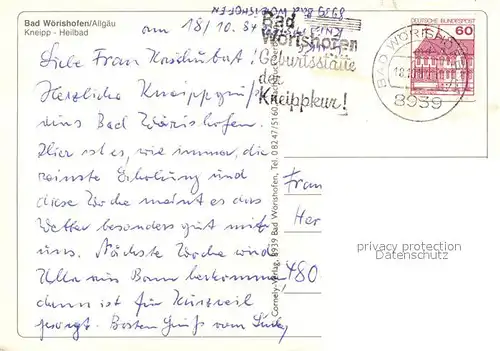 Bad Wörishofen/Allgäu
Kneipp - Heilbad
am 18/10. 84
Liebe Frau
Herzliche Kneippgrüße
aus Bad Wörishofen.
Hier ist es, wie immer, die
reinste Erholung und
diese Woche meint es das
Wetter besonders gut mit
uns. Nächste Woche wird
Ulla aus Bonn herkommen,
dann ist für Kurzweil
gesorgt. Besten Gruß vom
Bad
Wörishofen
Geburtsstätte
der
Kneippkur!
DEUTSCHE BUNDESPOST
60
BAD WÖRISHOFEN
8939
Cornely-Verlag, 8939 Bad Wörishofen, Tel. 08247/5160
Frau
Her
480
privacy protection
Datenschutz